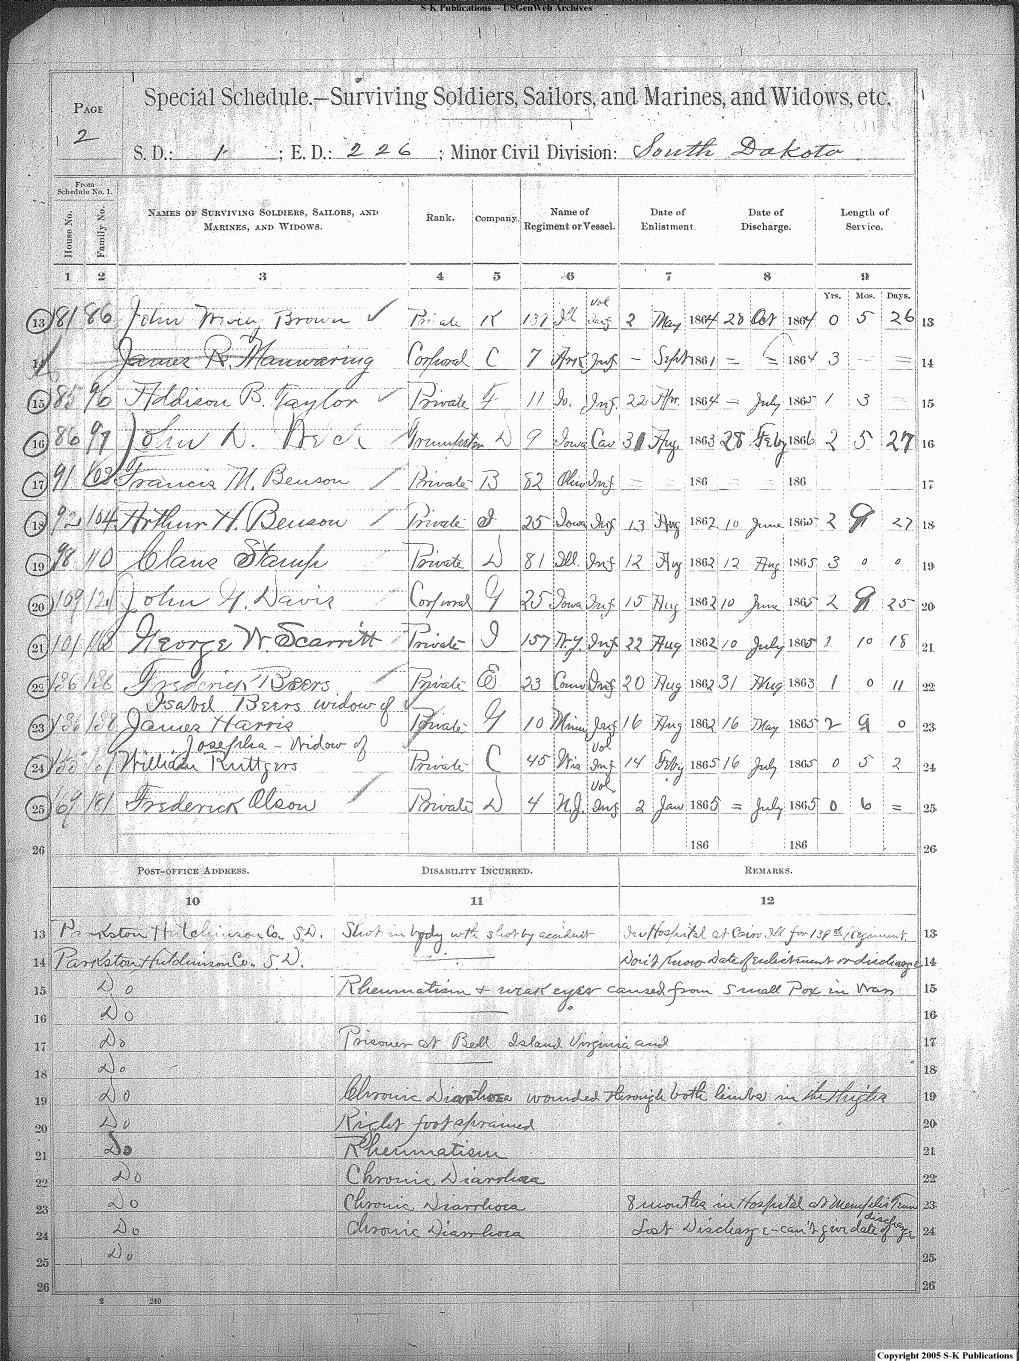 S-K Publications - USGenWeb Archives
Special Schedule.—Surviving Soldiers, Sailors, and Marines, and Widows, etc.
PAGE 2
S. D.: 1 ; E. D.: 226 ; Minor Civil Division: South Dakota
From Schedule No. 1.
House No. Family No. NAMES OF SURVIVING SOLDIERS, SAILORS, AND MARINES, AND WIDOWS. Rank. Company. Name of Regiment or Vessel. Date of Enlistment. Date of Discharge. Length of Service.
1 2 3 4 5 6 7 8 9
Yrs. Mos. Days.
13 81 86 John Brown Private K 137 Ill Vol Inf 2 May 1864 28 Oct 1864 0 5 26 13
14 James R. Manwaring Corporal C 7 Ark Inf – Sept 1861 = 1864 3 = 14
15 85 96 Addison B. Taylor Private F 11 Io. Inf. 22 Apr. 1864 = July 1865 1 3 15
16 86 97 John D. D 9 Iowa Cav 31 Aug. 1863 28 Feby 1866 2 5 27 16
17 91 103 Francis M. Benson Private B 82 Ohio Inf = = 186 186 17
18 92 104 Arthur H. Benson Private I 25 Iowa Inf 13 Aug 1862 10 June 1865 2 9 27 18
19 98 110 Claus Stamp Private D 81 Ill. Inf 12 Aug 1862 12 Aug 1865 3 0 0 19
20 109 121 John G. Davis Corporal G 25 Iowa Inf 15 Aug 1862 10 June 1865 2 9 25 20
21 101 George W. Scarritt Private I 157 N.Y. Inf 22 Aug 1862 10 July 1865 2 10 18 21
22 136 Frederick Beers Private E 23 Conn Inf 20 Aug 1862 31 Aug 1863 1 0 11 22
Isabel Beers widow of
23 136 James Harris Private G 10 Minn Inf 16 Aug 1862 16 May 1865 2 9 0 23
Josepha - Widow of
24 William Ruttgers Private C 45 Wis Vol Inf 14 Feby 1865 16 July 1865 0 5 2 24
25 169 181 Frederick Olson Private D 4 N.J. Vol Inf 2 Jan 1865 = July 1865 0 6 = 25
26 186 186 26
POST-OFFICE ADDRESS. DISABILITY INCURRED. REMARKS.
10 11 12
13 Parkston Hutchinson Co. S.D. Shot in body with shot by accident In Hospital at Cairo Ill for 139th Regiment 13
14 Parkston Hutchinson Co. S.D. Don't Know Date of enlistment or discharge 14
15 Do Rheumatism + weak eyes caused from Small Pox in War 15
16 Do 16
17 Do Prisoner at Bell Island Virginia and 17
18 Do 18
19 Do Chronic Diarrhoea wounded through both limbs in the thighs 19
20 Do Right foot sprained 20
21 Do Rheumatism 21
22 Do Chronic Diarrhoea 22
23 Do Chronic Diarrhoea 8 months in Hospital at Memphis Tenn 23
24 Do Chronic Diarrhoea Lost Discharge - can't give date of discharge 24
25 Do 25
26 26
2 240
Copyright 2005 S-K Publications